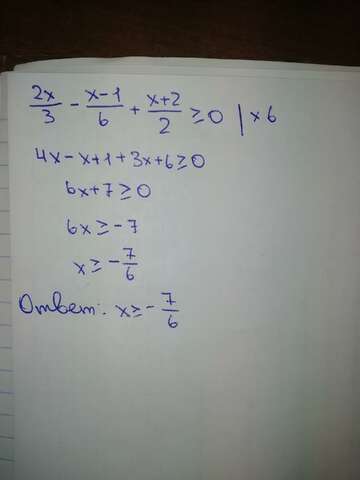 2x/3 - x-1/6 + x+2/2 ≥ 0 | × 6
4x - x + 1 + 3x + 6 ≥ 0
6x + 7 ≥ 0
6x ≥ -7
x ≥ - 7/6
Ответ: x ≥ - 7/6